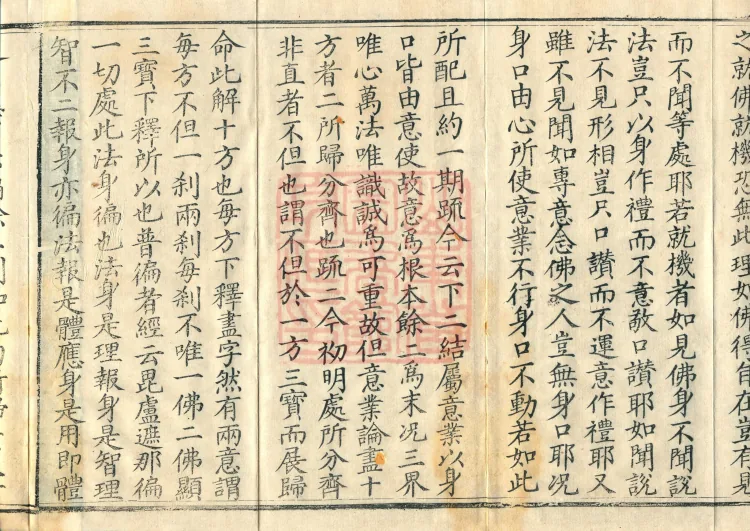 之就佛就機恐無此理如佛得自在豈有見
而不聞等處耶若就機者如見佛身不聞說
法豈只以身作禮而不意敬口讚耶如聞說
法不見形相豈只口讚而不運意作禮耶又
雖不見聞如專意念佛之人豈無身口耶况
身口由心所使意業不行身口不動若如此
所配且約一期䟽今云下二結屬意業以身
口皆由意使故意爲根本餘二爲末况三界
唯心萬法唯識誠爲可重故但意業論盡十
方者二所歸分齊也䟽二今初明處所分齊
非直者不但也謂不但於一方三寶而展歸
命此解十方也每方下釋盡字然有兩意謂
每方不但一刹兩刹每刹不唯一佛二佛顯
三寶下釋所以也普徧者經云毘盧遮那徧
一切處此法身徧也法身是理報身是智理
智不二報身亦徧法報是體應身是用即體